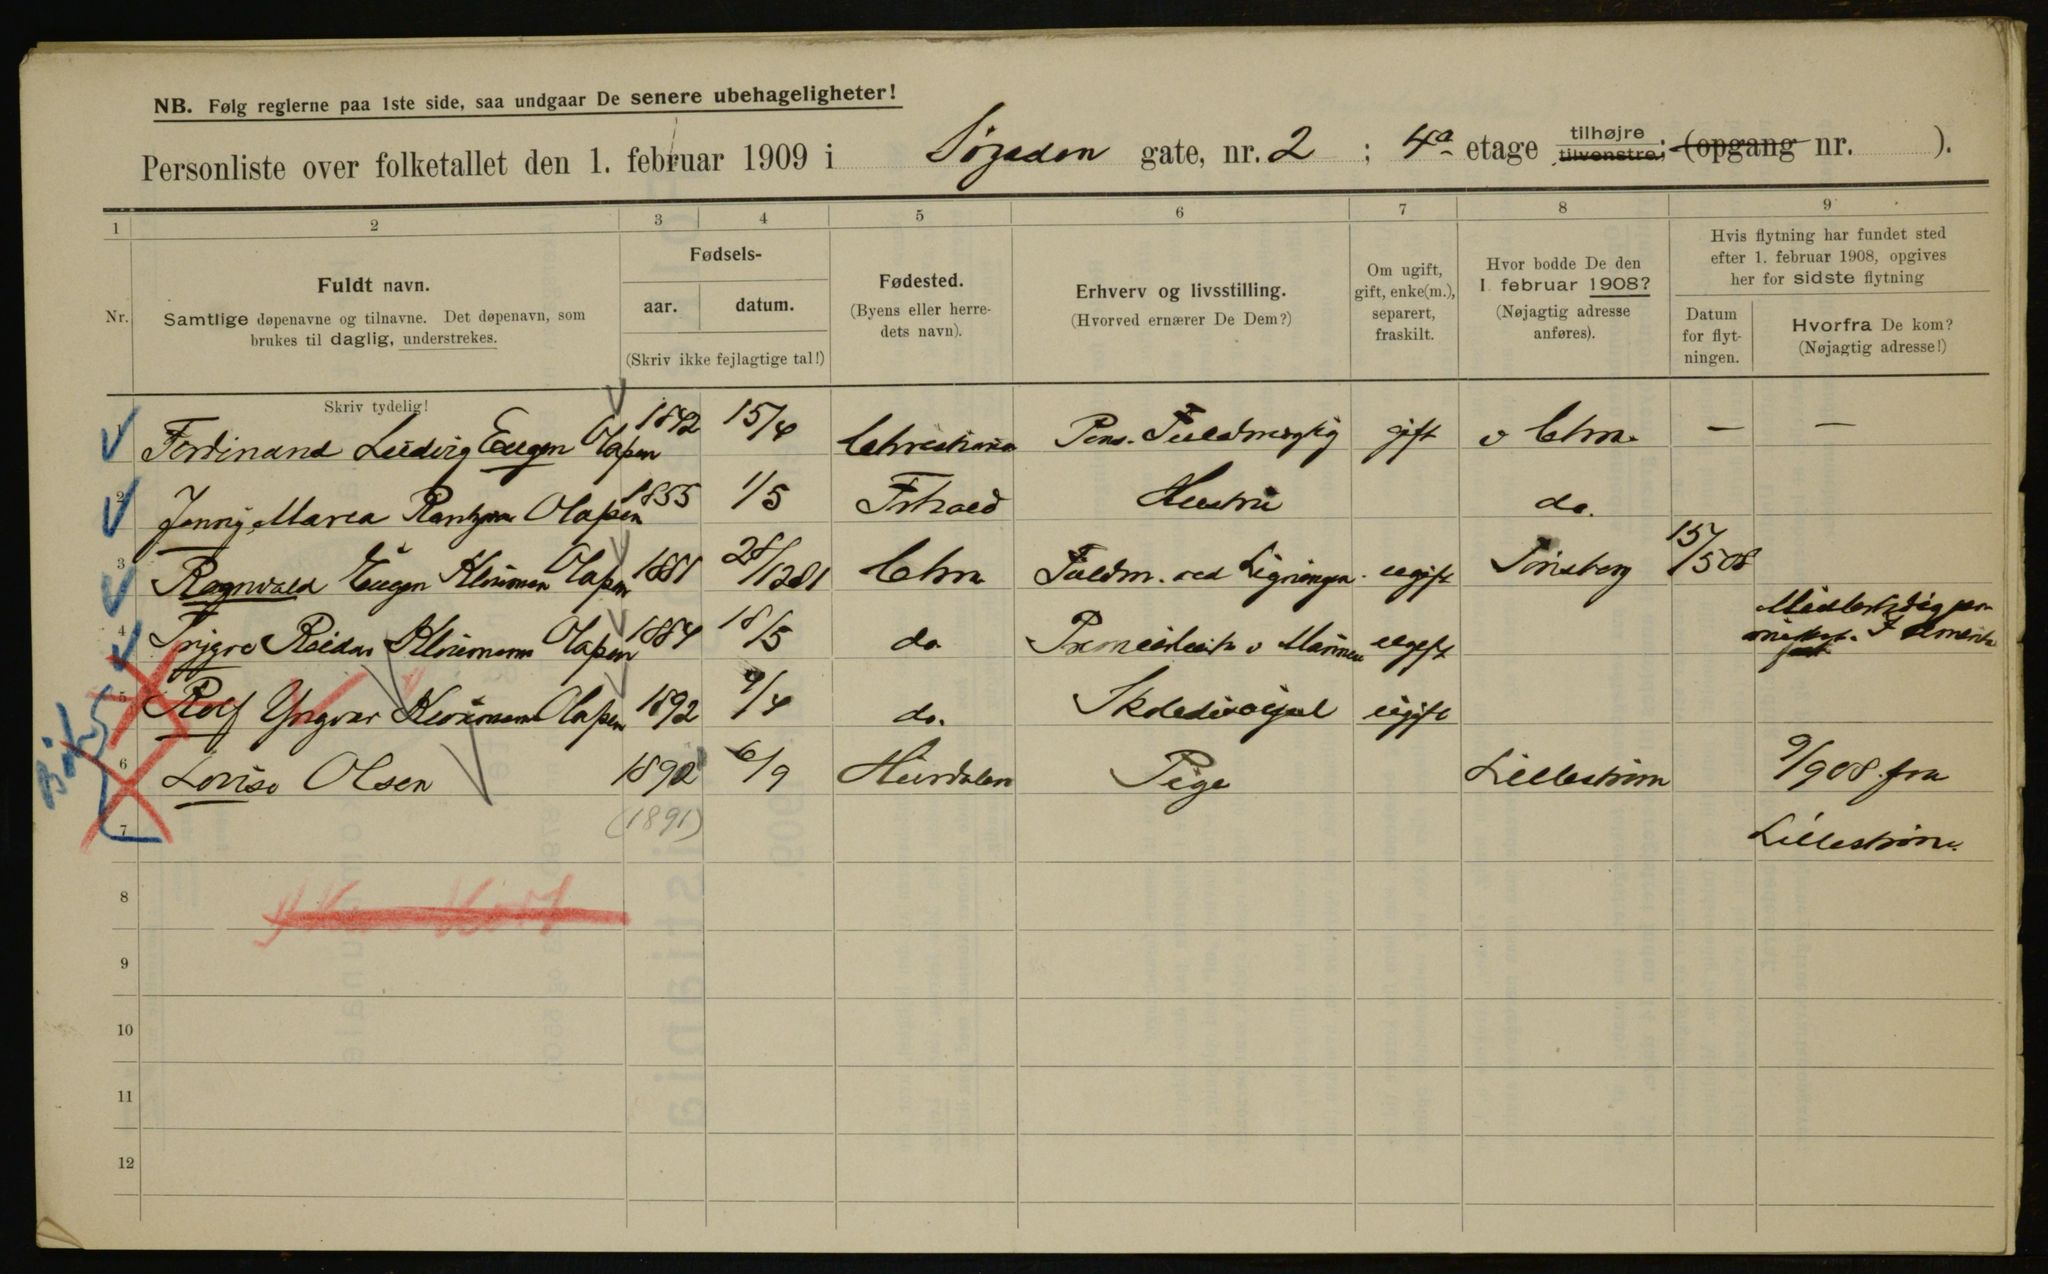 NB. Følg reglerne paa 1ste side, saa undgaar De senere ubehageligheter!
Personliste over folketallet den 1. februar 1909 i Søgaden gate, nr. 2 ; 4a etage tilhøjre tilvenstre; (opgang nr. ).
1 2 3 4 5 6 7 8 9
Nr.
Fuldt navn.
Samtlige døpenavne og tilnavne. Det døpenavn, som
brukes til daglig, understrekes.
Skriv tydelig!
Fødsels-
aar. datum.
(Skriv ikke fejlagtige tal!)
Fødested.
(Byens eller herre-
dets navn).
Erhverv og livsstilling.
(Hvorved ernærer De Dem?)
Om ugift,
gift, enke(m.),
separert,
fraskilt.
Hvor bodde De den
1. februar 1908?
(Nøjagtig adresse
anføres).
Hvis flytning har fundet sted
efter 1. februar 1908, opgives
her for sidste flytning
Datum
for flyt-
ningen.
Hvorfra De kom?
(Nøjagtig adresse!)
1 Ferdinand Ludvig Eugen Olafsen 1842 15/4 Christiania Pens. Fuldmægtig gift Chra. — —
2 Jenny Marea Olafsen 1855 1/5 Hustru do.
3 Ragnvald Eugen Olafsen 1881 28/12 81 Chra Fuldm. ved Ligningen ugift Tønsberg 15/5 08
4 Trygve Reidar Olafsen 1884 18/5 do v Marinen ugift
5 Rolf Yngvar Olafsen 1892 9/4 do. ugift
6 Lovise Olsen 1892 6/9 Hurdalen Pige Lillestrøm 9/9 08 fra
7 (1891) Lillestrøm.
8
9
10
11
12